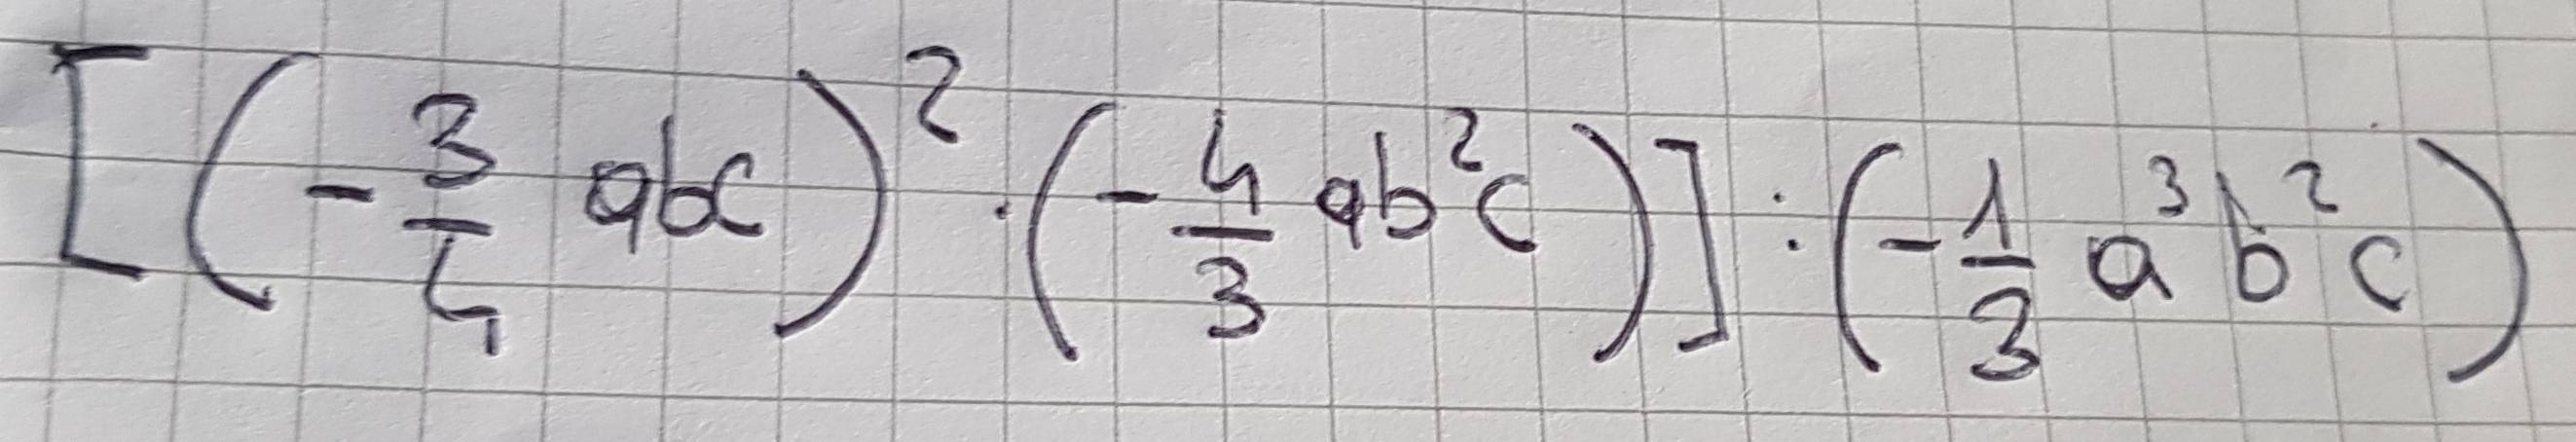 [(-3/4 abc)² · (-4/3 ab²c)] : (-1/3 a³b²c)